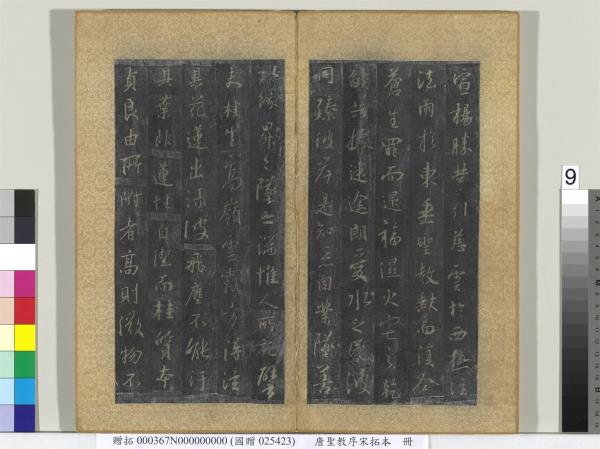 宣揚勝業引慈雲於西極注
法雨於東垂聖教缺而復全
蒼生罪而還福濕火宅之乾
餤共拔迷途朗愛水之昏波
同臻彼岸是知惡因業墜善
以緣昇昇墜之端惟人所託譬
夫桂生高嶺雲露方得泫
其花蓮出淥波飛塵不能汙
其葉非蓮性自潔而桂質本
貞良由所附者高則微物不
9
贈拓 000367N000000000 (國贈 025423) 唐聖教序宋拓本 冊